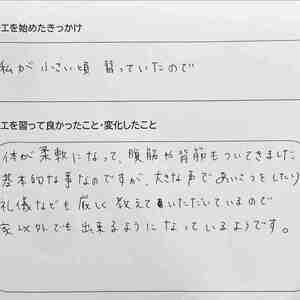 エを始めたきっかけ
私が小さい頃 習っていたので
エを習って良かったこと・変化したこと
体が柔軟になって、腹筋や背筋もついてきました
基本的な事なのですが、大きな声であいさつをしたり
礼儀なども厳しく教えていただいているので
家以外でも出来るようになっているようです。